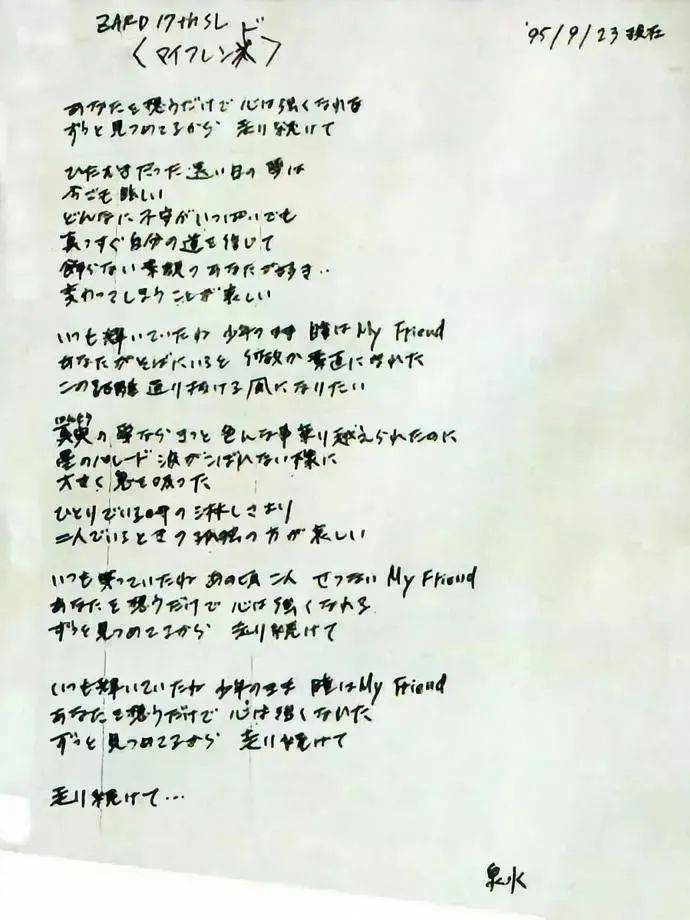 ZARD 17th SL
〈マイフレンド〉
'95/9/23現在
あなたを想うだけで 心は強くなれる
ずっと見つめてるから 走り続けて
ひたむきだった遠い日の夢は
今でも眩しい
どんなに不安がいっぱいでも
真っすぐ自分の道を信じて
飾らない素顔のあなたが好き‥
変わってしまうことが哀しい
いつも輝いていたね 少年のまま 瞳はMy Friend
あなたがそばにいると 何故か素直になれた
この距離通り抜ける風になりたい
真実の夢ならきっと色んな事乗り越えられたのに
星のパレード 涙がこぼれない様に
大きく息を吸った
ひとりでいる時の淋しさより
二人でいるときの孤独の方が哀しい
いつも笑っていたね あの頃二人 せつない My Friend
あなたを想うだけで 心は強くなれる
ずっと見つめてるから 走り続けて
いつも輝いていたね 少年のまま 瞳はMy Friend
あなたを想うだけで 心は強くなれた
ずっと見つめてるから 走り続けて
走り続けて…
泉水